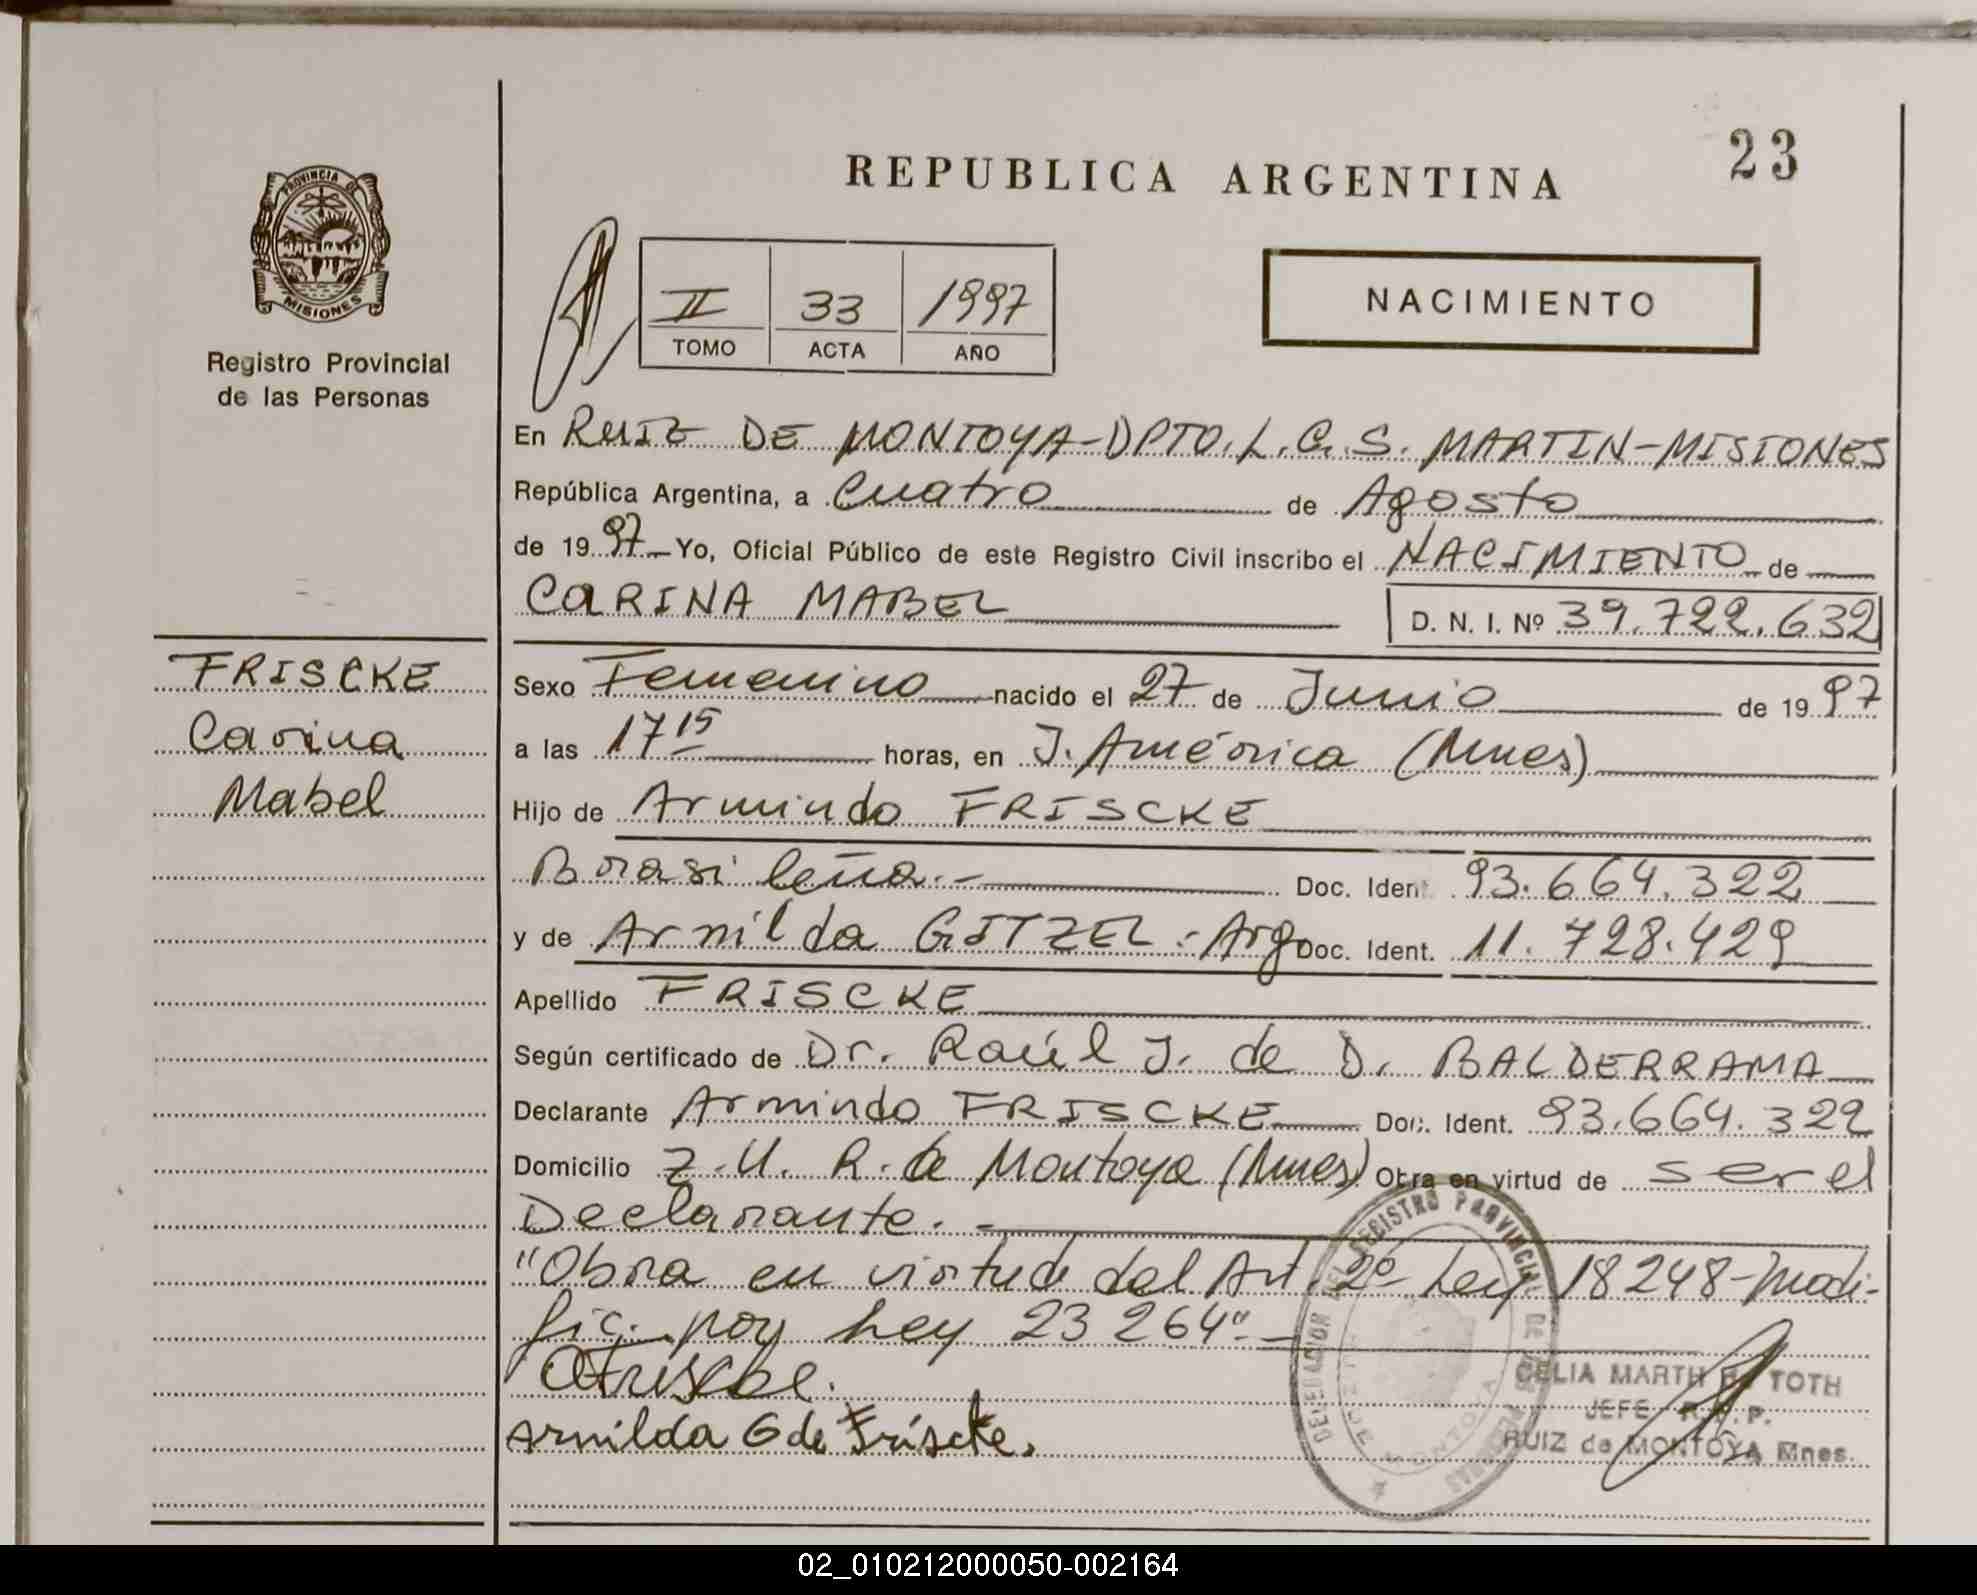 23
REPUBLICA ARGENTINA
PROVINCIA DE
MISIONES
Registro Provincial
de las Personas
II 33 1997
TOMO ACTA AÑO
NACIMIENTO
En RUIZ DE MONTOYA-DPTO. L. G. S. MARTIN-MISIONES
República Argentina, a Cuatro de Agosto
de 1997 Yo, Oficial Público de este Registro Civil inscribo el NACIMIENTO de
CARINA MABEL D. N. I. Nº 39.722.632
FRISCKE
Carina
Mabel
Sexo Femenino nacido el 27 de Junio de 1997
a las 17 15 horas, en J. América (Mnes)
Hijo de Armindo FRISCKE
Brasileña.- Doc. Ident. 93.664.322
y de Arnilda GITZEL - Arg Doc. Ident. 11.728.429
Apellido FRISCKE
Según certificado de Dr. Raúl J. de D. BALDERRAMA
Declarante Armindo FRISCKE Doc. Ident. 93.664.322
Domicilio Z.U. R. de Montoya (Mnes) Obra en virtud de ser el
Declarante.-
"Obra en virtud del Art. 2º Ley 18248-Modi-
fic. por Ley 23 264"
Arnilda G de Friscke.
DELEGACION DEL REGISTRO PROVINCIAL DE LAS PERSONAS
RUIZ DE MONTOYA
CELIA MARTH TOTH
JEFE R. P. P.
RUIZ de MONTOYA Mnes.
02_010212000050-002164